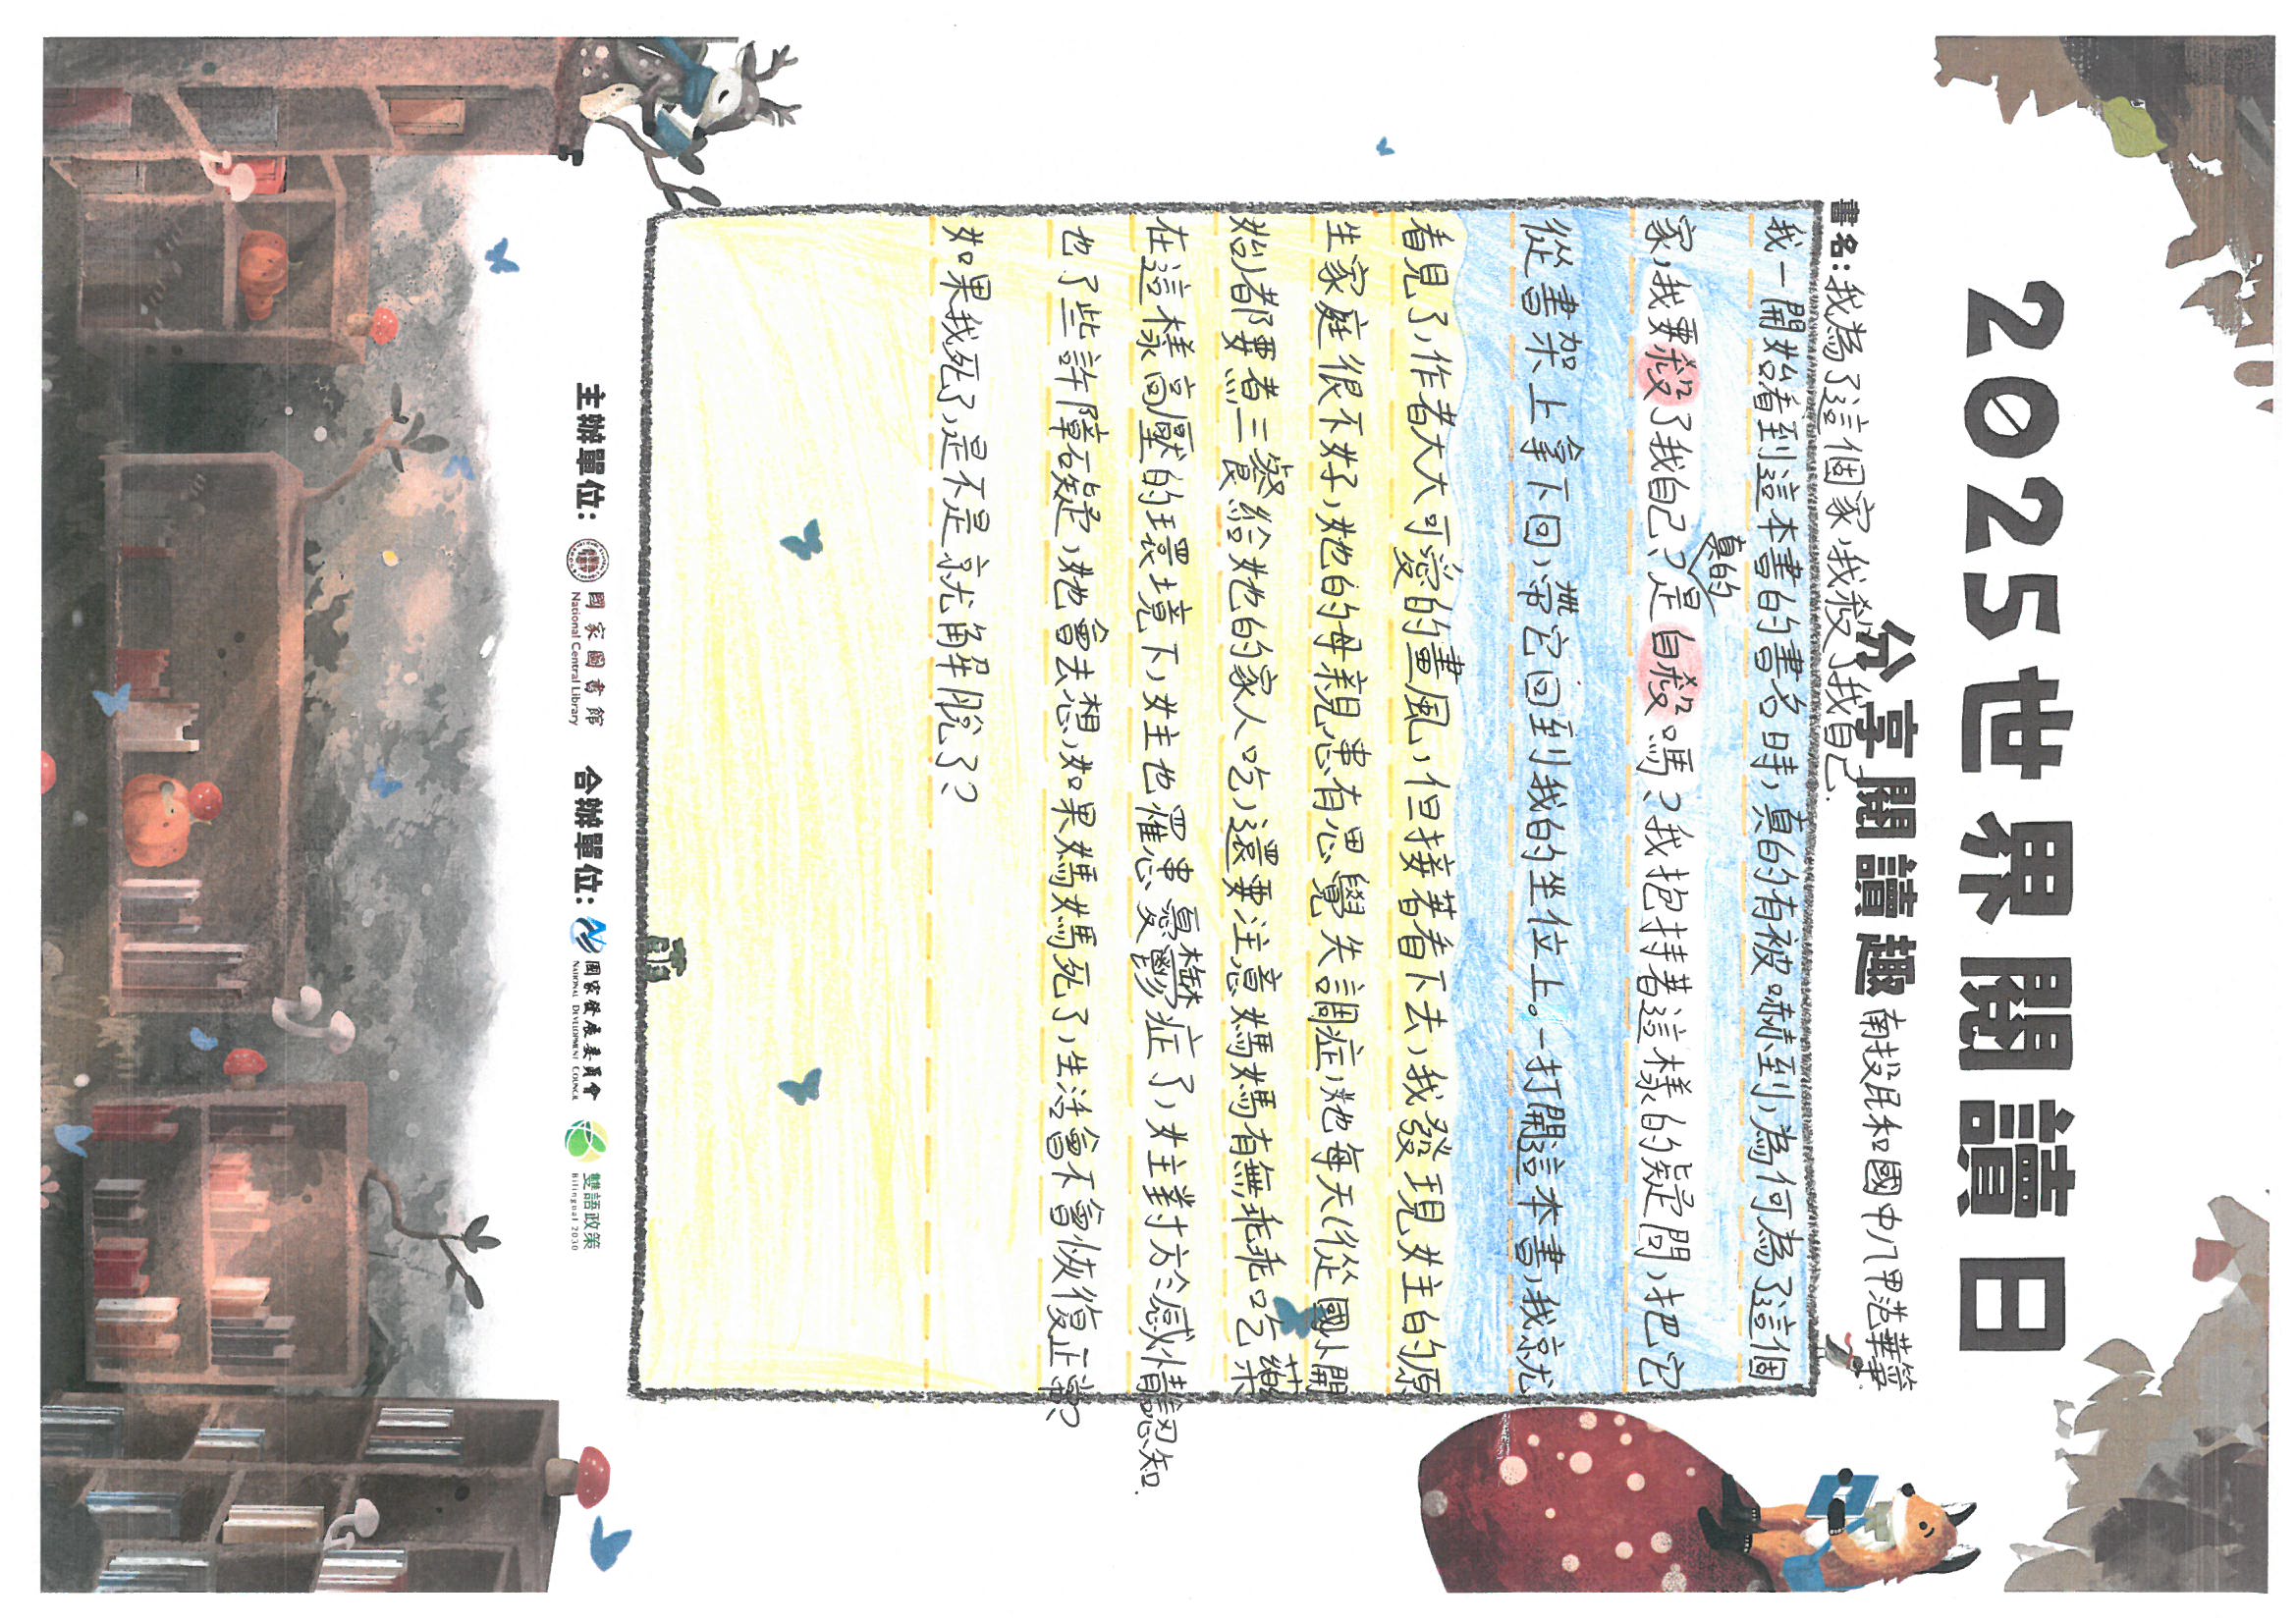 2025世界閱讀日
分享閱讀趣 南投民和國中八甲
書名:我為了這個家,我殺了我自己.
我一開始看到這本書的書名時,真的有被嚇到,為何為了這個
家,我要殺了我自己?是真的自殺嗎?我抱持著這樣的疑問,把它
從書架上拿下回,帶它回到我的坐位上。一打開這本書,我就
看見了,作者大大可愛的畫風,但接著看下去,我發現女主的原
生家庭很不好,她的母親患有思覺失調症,她每天從國小開
始都要煮三餐給她的家人吃,還要注意媽媽有無乖乖吃藥
在這樣高壓的環境下,女主也罹患憂鬱症了,女主對於感情認知.
也了些許障礙,她會去想,如果媽媽死了,生活會不會恢復正常?
如果我死了,是不是就解脫了?
主辦單位: 國家圖書館 National Central Library 合辦單位: 國家發展委員會 NATIONAL DEVELOPMENT COUNCIL 雙語政策 Bilingual 2030